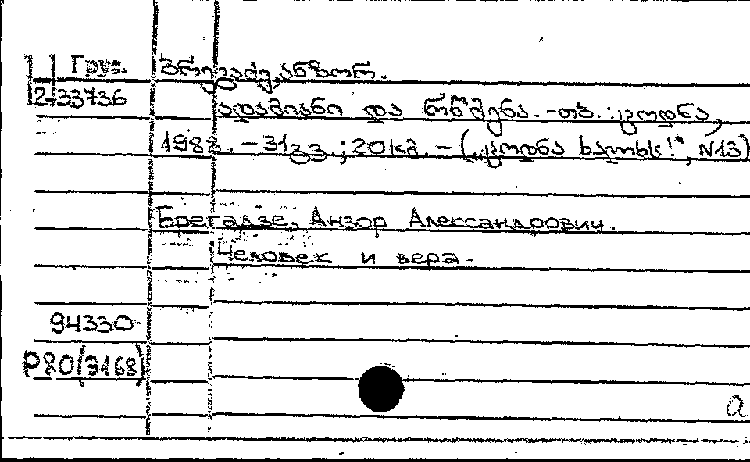 Груз.
ბრეგაძე, ანზორ.
2-33736
ადამიანი და რწმენა. - თბ. : ცოდნა,
1982. - 31გვ. ; 20სმ. - („ცოდნა ხალხს!“, N13)
Брегадзе, Анзор Александрович.
Человек и вера.
94330
Р20(3168)
a